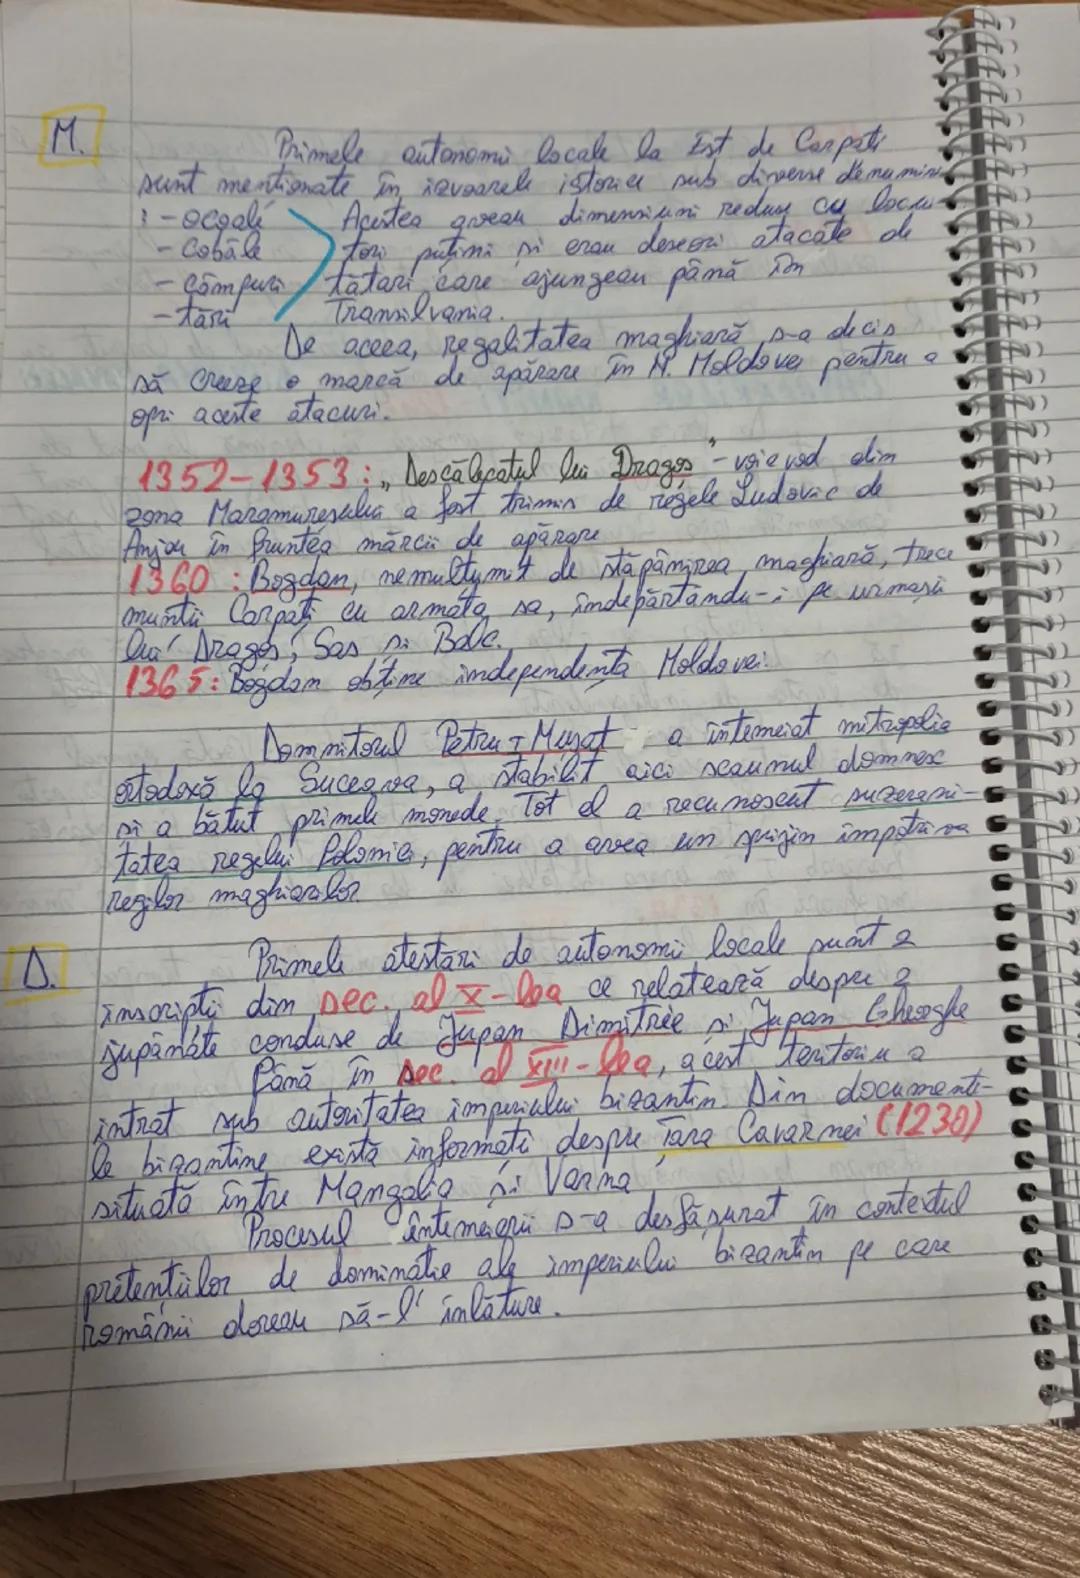 M.
Primele autonomii locale la Est de Carpați
sunt menționate în izvoarele istorice sub diverse denumiri
: - ocoale Acestea aveau dimensiuni reduse cu locui-
- Cobâle tori puțini și erau deseori atacate de
- Câmpuri tătari care ajungeau până în
- țări Transilvania.
De aceea, regalitatea maghiară s-a decis
să creeze o marcă de apărare în N. Moldovei pentru a
opri aceste atacuri.
1352-1353: „Descălecatul lui Dragoș" - voievod din
zona Maramureșului a fost trimis de regele Ludovic de
Anjou în fruntea mărcii de apărare
1360: Bogdan, nemulțumit de stăpânirea maghiară, trece
munții Carpați cu armata sa, îndepărtându-i pe urmașii
lui Dragoș, Sas și Balc.
1365: Bogdan obține independența Moldovei.
Domnitorul Petru I Mușat a întemeiat mitropolia
ortodoxă la Suceava, a stabilit aici scaunul domnesc
și a bătut primele monede. Tot el a recunoscut suzerani-
tatea regelui Poloniei, pentru a avea un sprijin împotriva
regilor maghiarilor
D.
Primele atestări de autonomii locale sunt 2
inscripții din sec. al X-lea ce relatează despre 2
jupânate conduse de Jupan Dimitrie și Jupan Gheorghe
Până în sec. al XIII-lea, acest teritoriu a
intrat sub autoritatea imperiului bizantin. Din documente-
le bizantine există informații despre Țara Cavarnei (1230)
situată între Mangalia și Varna
Procesul întemeierii s-a desfășurat în contextul
pretențiilor de dominație ale imperiului bizantin pe care
românii doreau să-l înlăture.